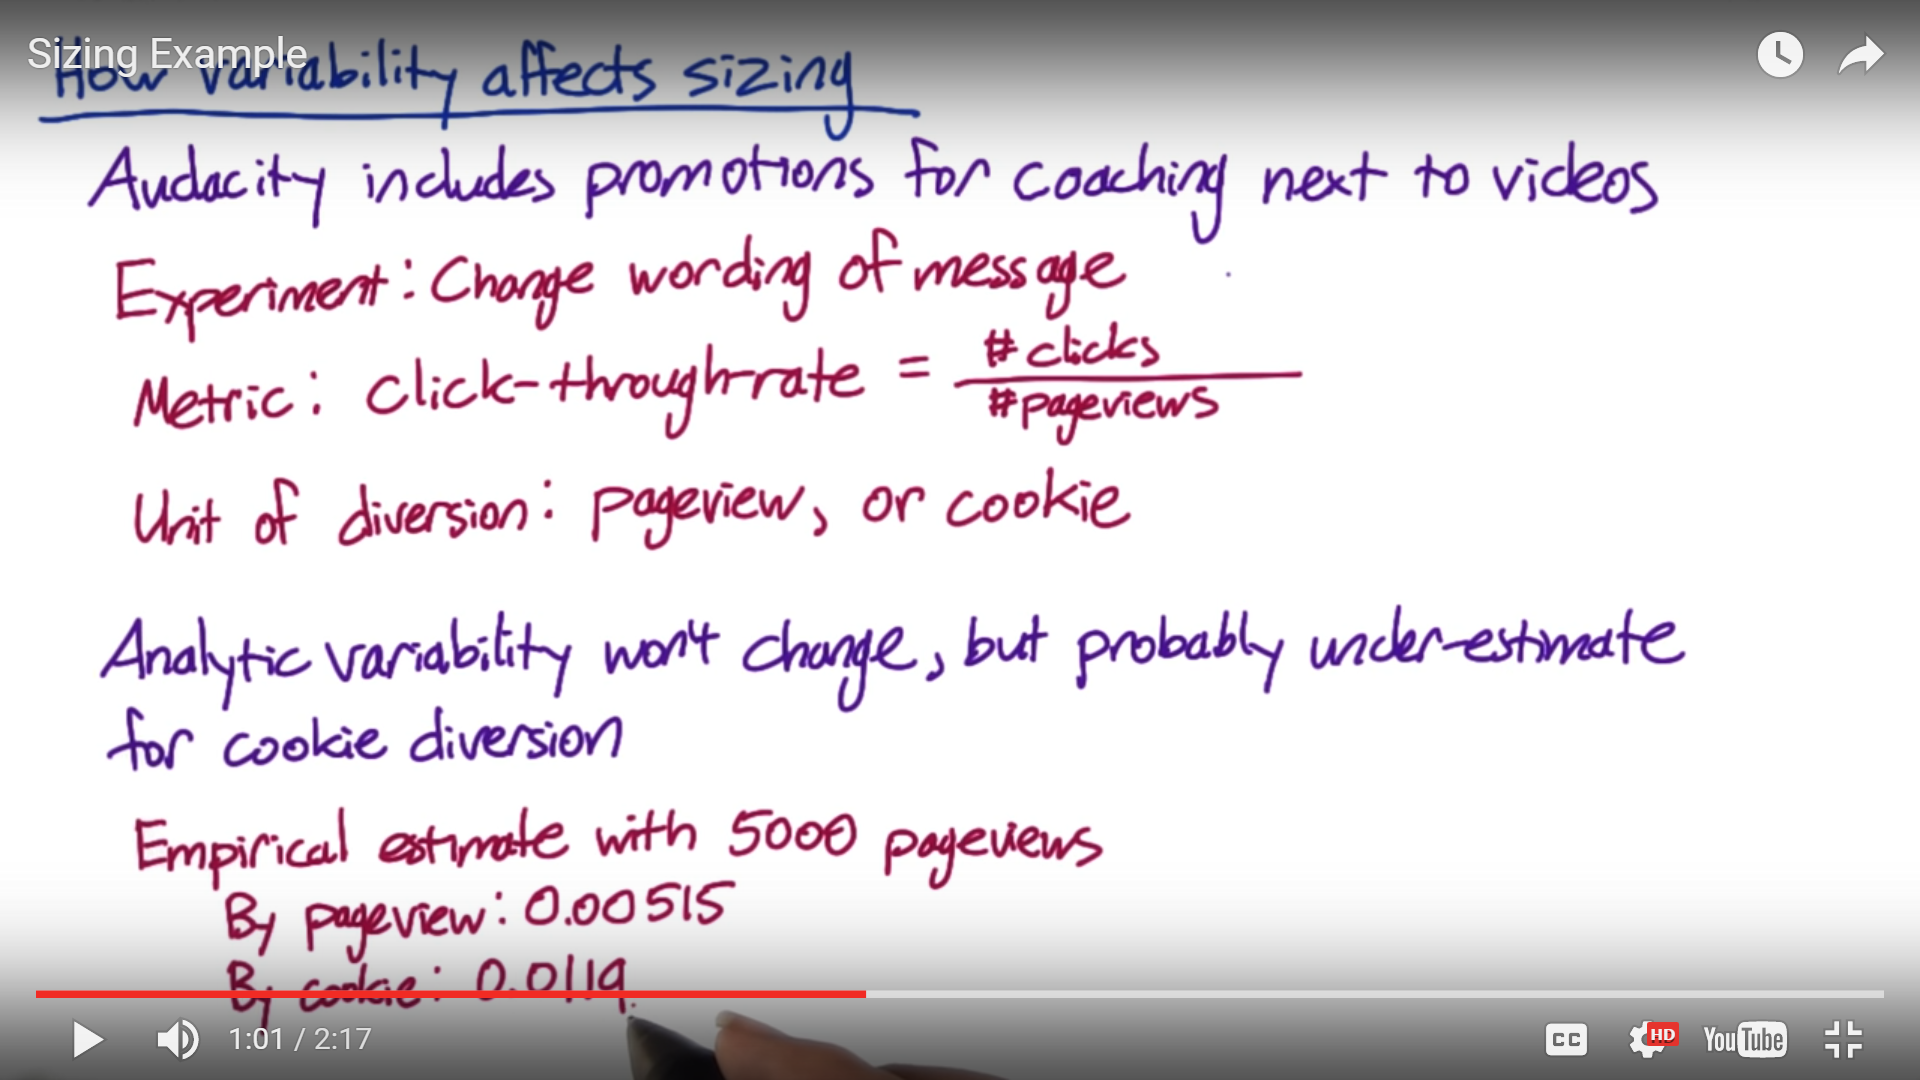 Sizing Example
How variability affects sizing
Audacity includes promotions for coaching next to videos
Experiment: Change wording of message
Metric: click-through-rate = #clicks
#pageviews
Unit of diversion: pageview, or cookie
Analytic variability won't change, but probably under-estimate
for cookie diversion
Empirical estimate with 5000 pageviews
By pageview: 0.00515
By cookie: 0.0119
1:01 / 2:17
CC
HD
YouTube